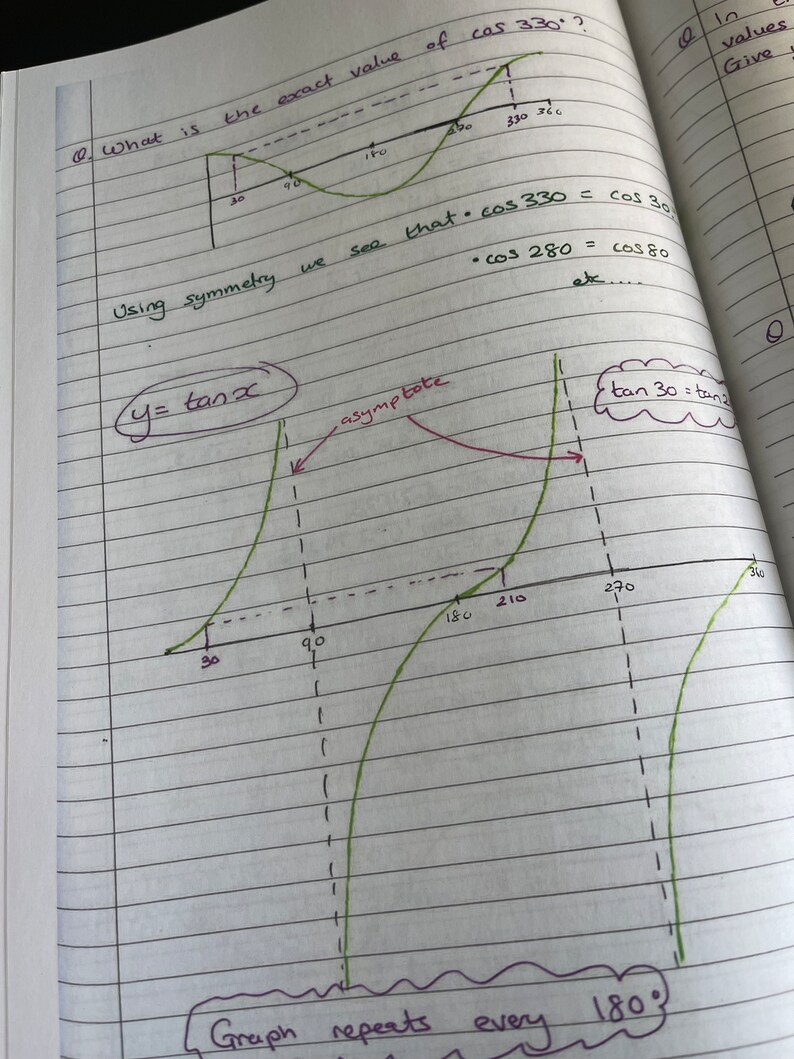 Q. What is the exact value of cos 330°?
30 90 180 270 330 360
Using symmetry we see that • cos 330 = cos 30
• cos 280 = cos 80
etc....
y = tan x
asymptote
tan 30 = tan
30 90 180 210 270 360
Graph repeats every 180°
Q In
values
Give
Q